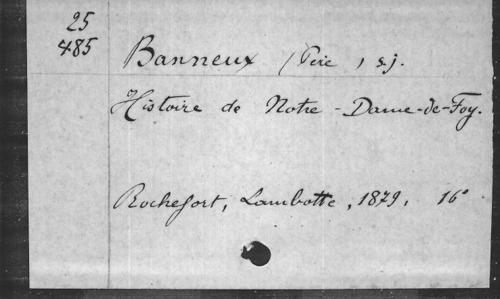 25
485
Banneux (Père, s.j.
Histoire de Notre-Dame-de-Foy.
Rochefort, Lambotte, 1879, 16°